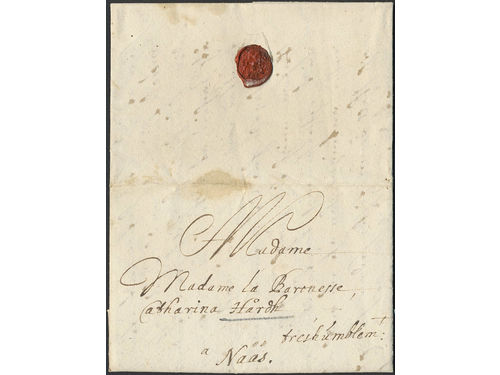 Madame
Madame la Baronesse,
Catharina Hårdh
treshumblemt:
a
Nääs.